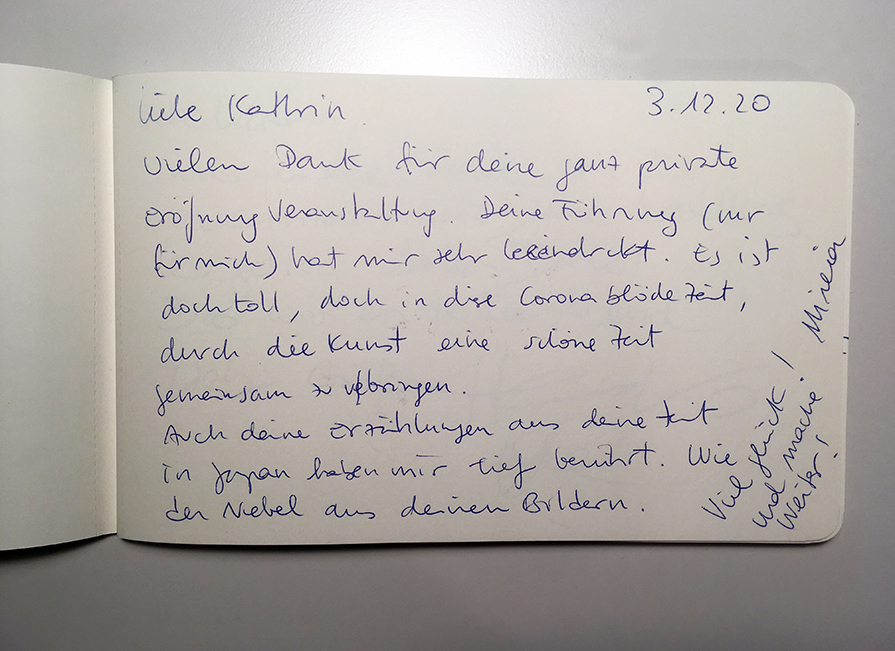 Liebe Kathrin
3.12.20
Vielen Dank für deine ganz private
Eröfnung Veranstaltung. Deine Führung (nur
für mich) hat mir sehr beeindrckt. Es ist
doch toll, doch in dise Corona blöde Zeit,
durch die Kunst eine schöne Zeit
gemeinsam zu verbringen.
Auch deine Erzählungen aus deine Zeit
in Japan haben mir tief berührt. Wie
der Niebel aus deinen Bildern.
Viel Glück! Mireia
und mache
Weiter!